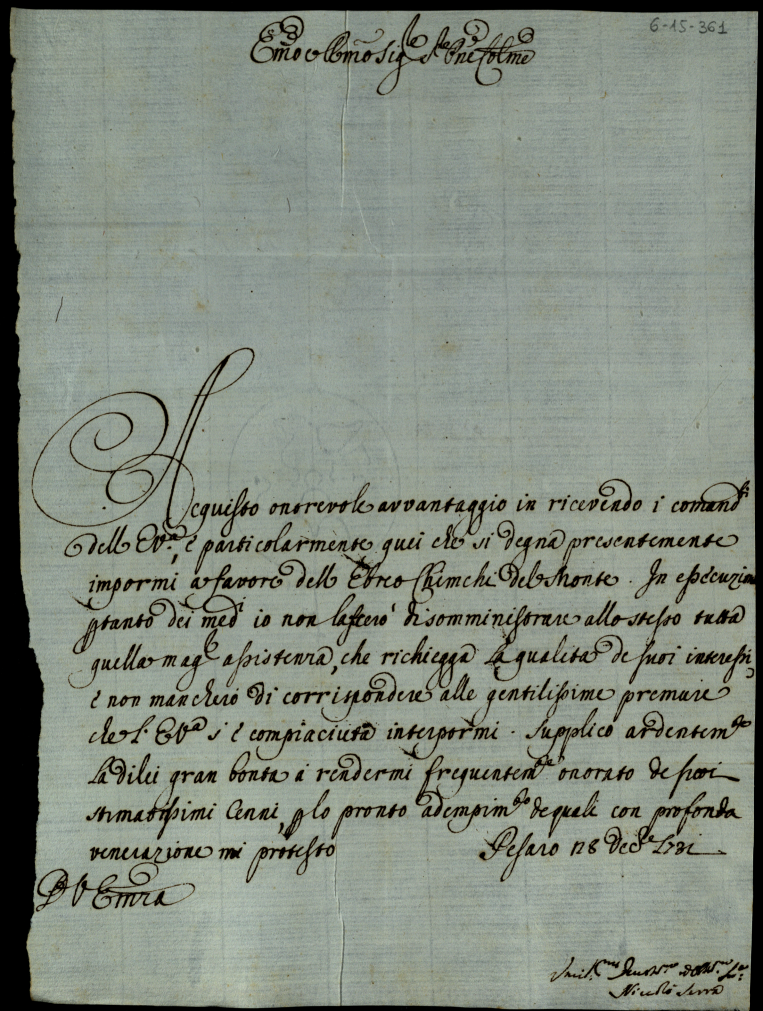 6-15-361
Emo e Rmo Sig.re Sig.re Pne Colmo
Acquisto onorevole avvantaggio in ricevendo i comandi
dell'E.V.a, e particolarmente quei che si degna presentemente
impormi a favore dell'Ebreo Chimchi del Monte. In esecuzione
ptanto dei med.i io non lascerò di somministrare allo stesso tutta
quella mag.e assistenza, che richiegga la qualità de suoi interessi,
e non mancherò di corrispondere alle gentilissime premure
che l'E.V.a si è compiaciuta interpormi. Supplico ardentem.te
la di lei gran bontà a rendermi frequentem.te onorato de suoi
stimatissimi Cenni, p lo pronto adempim.to de quali con profonda
venerazione mi protesto Pesaro 28 Dec.e 1731
D V Emza
Umil.mo Devot.mo ed Obb.mo
Niccolò Serra